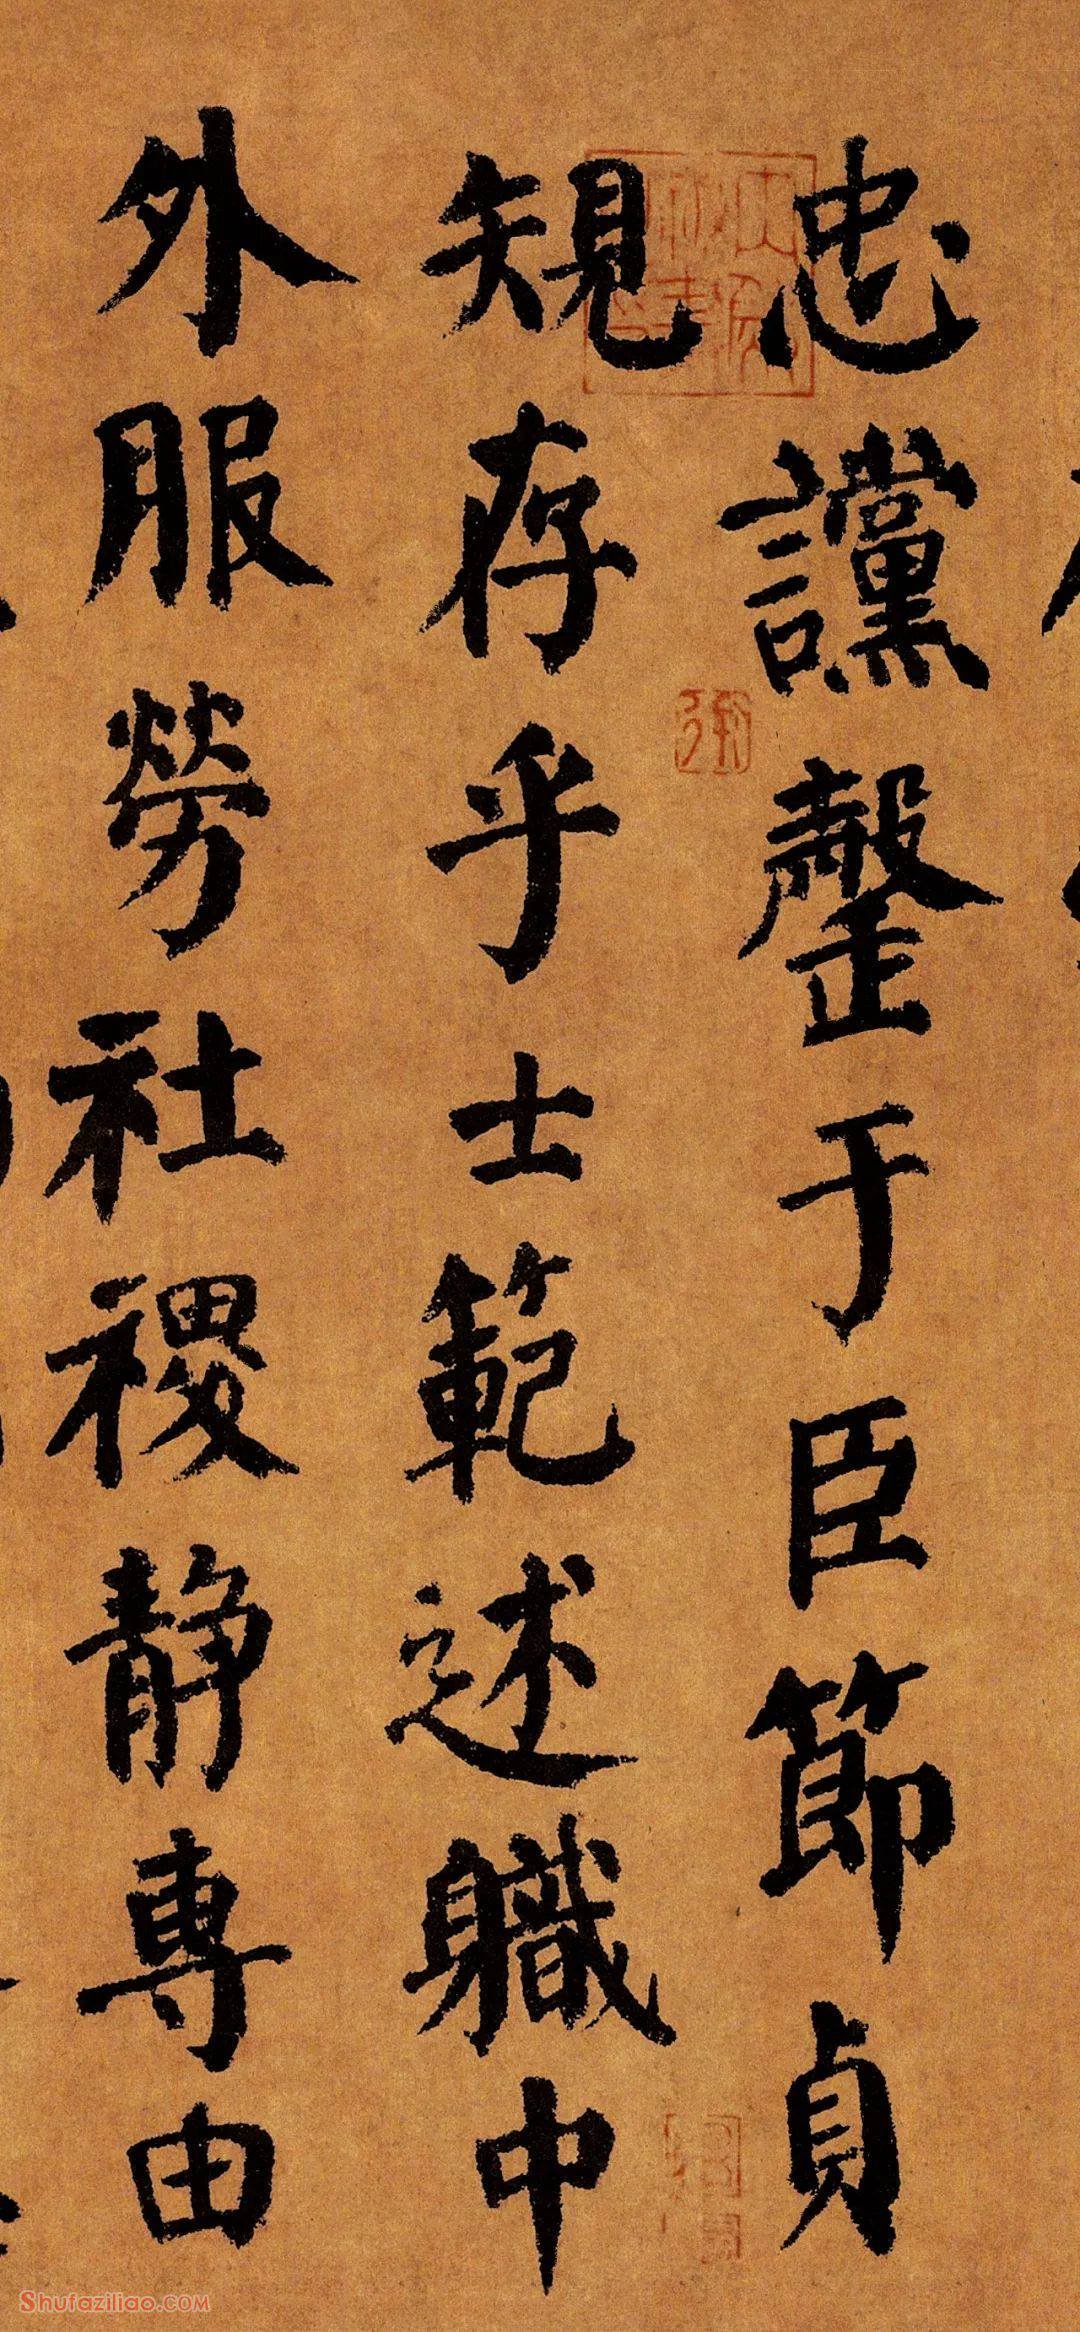 忠讜罄于臣節貞
規存乎士範述職中
外服勞社稷靜專由
Shufaziliao.COM